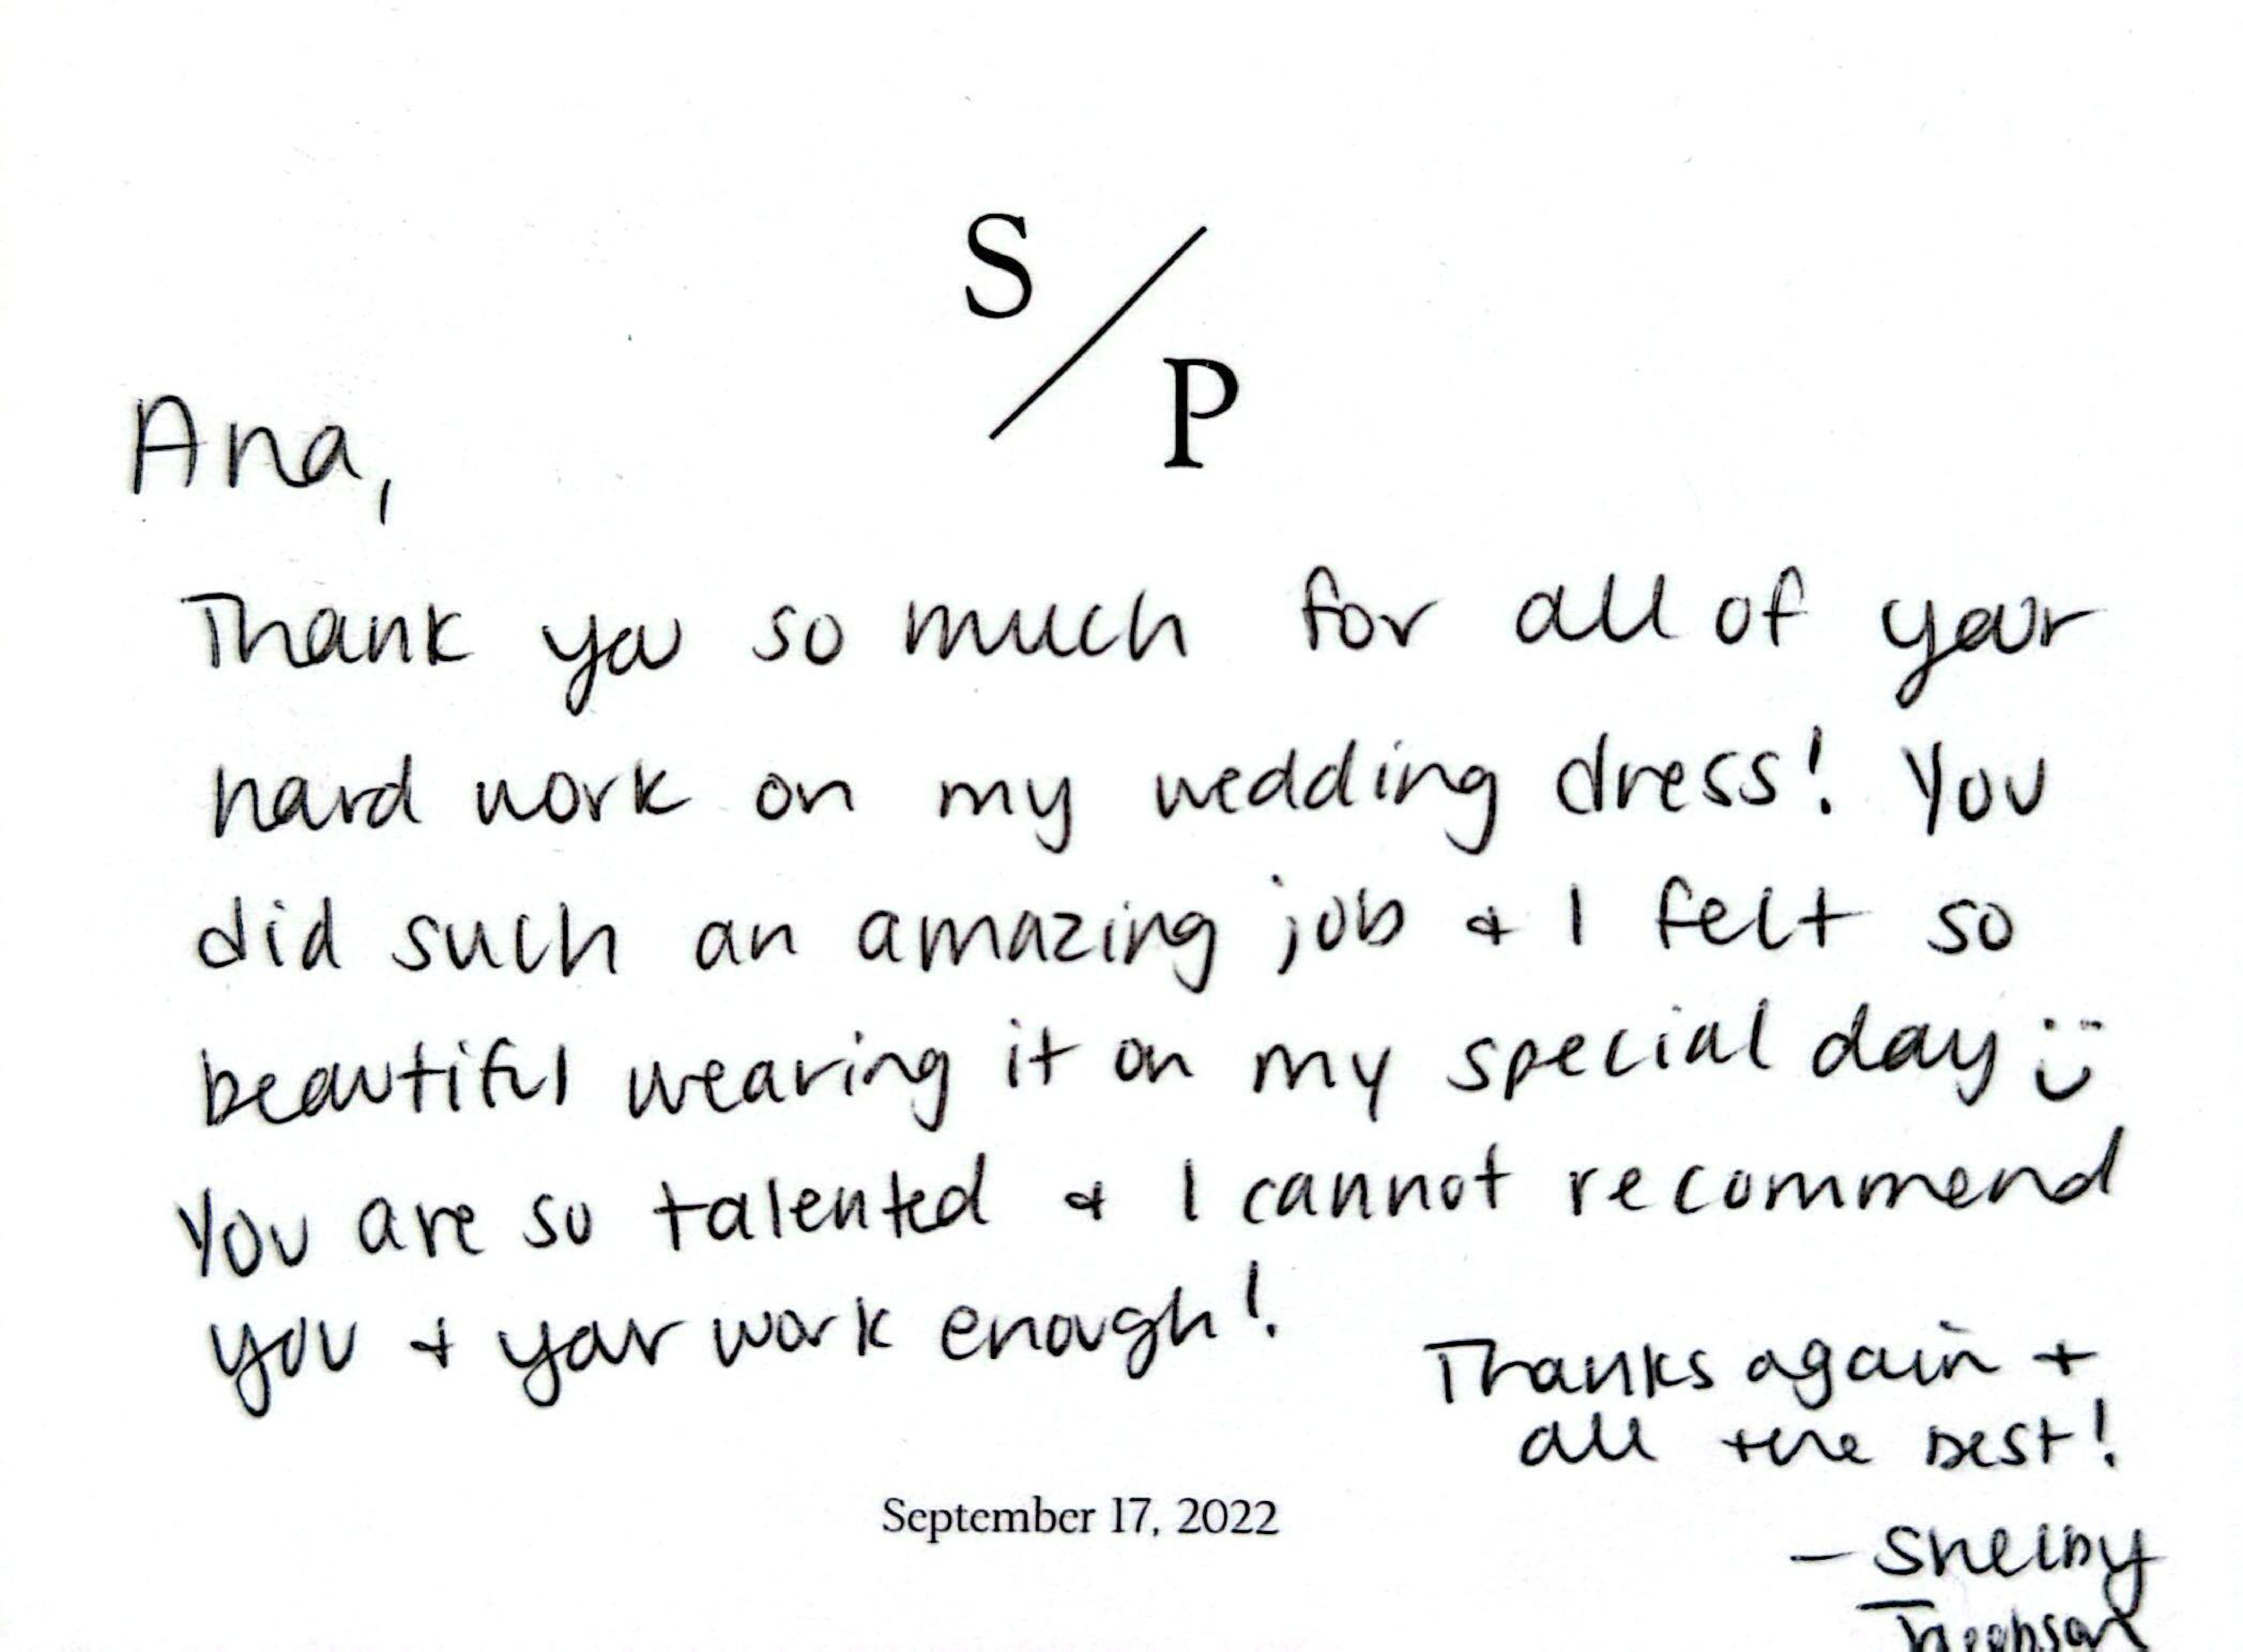 S
P
Ana,
Thank you so much for all of your
hard work on my wedding dress! You
did such an amazing job & I felt so
beautiful wearing it on my special day :)
You are so talented & I cannot recommend
you + your work enough!
Thanks again +
all the best!
September 17, 2022
– Shelby
Jacobson